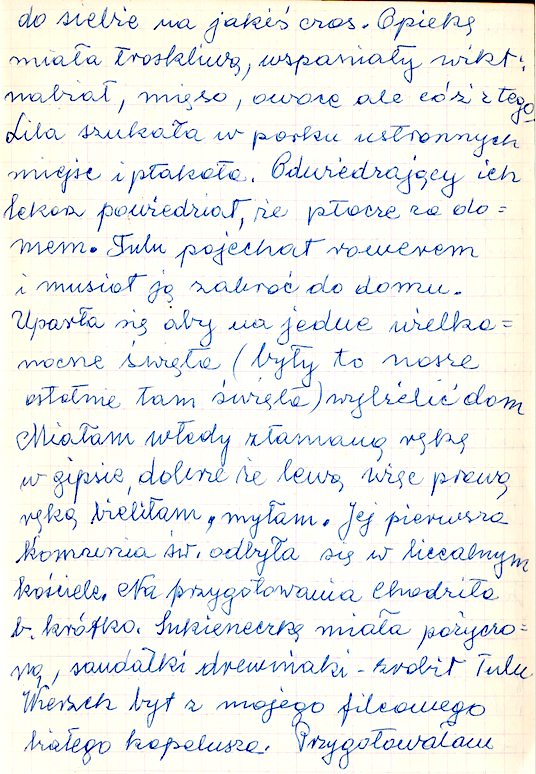 do siebie na jakiś czas. Opiekę
miała troskliwą, wspaniały wikt:
nabiał, mięso, owoce ale cóż z tego
Lila szukała w parku ustronnych
miejsc i płakała. Odwiedzający ich
lekarz powiedział, że płacze za do=
mem. Tulu pojechał rowerem
i musiał ją zabrać do domu.
Uparła się aby na jedne wielka=
nocne święta (były to nasze
ostatnie tam święta) wybielić dom
Miałam wtedy złamaną rękę
w gipsie, dobrze że lewą więc prawą
ręką bieliłam, myłam. Jej pierwsza
Komunia św. odbyła się w licealnym
kościele. Na przygotowania chodziła
b. krótko. Sukieneczkę miała pożyczo=
ną, sandałki drewniaki - zrobił Tulu
Wierzch był z mojego filcowego
białego kapelusza. Przygotowałam